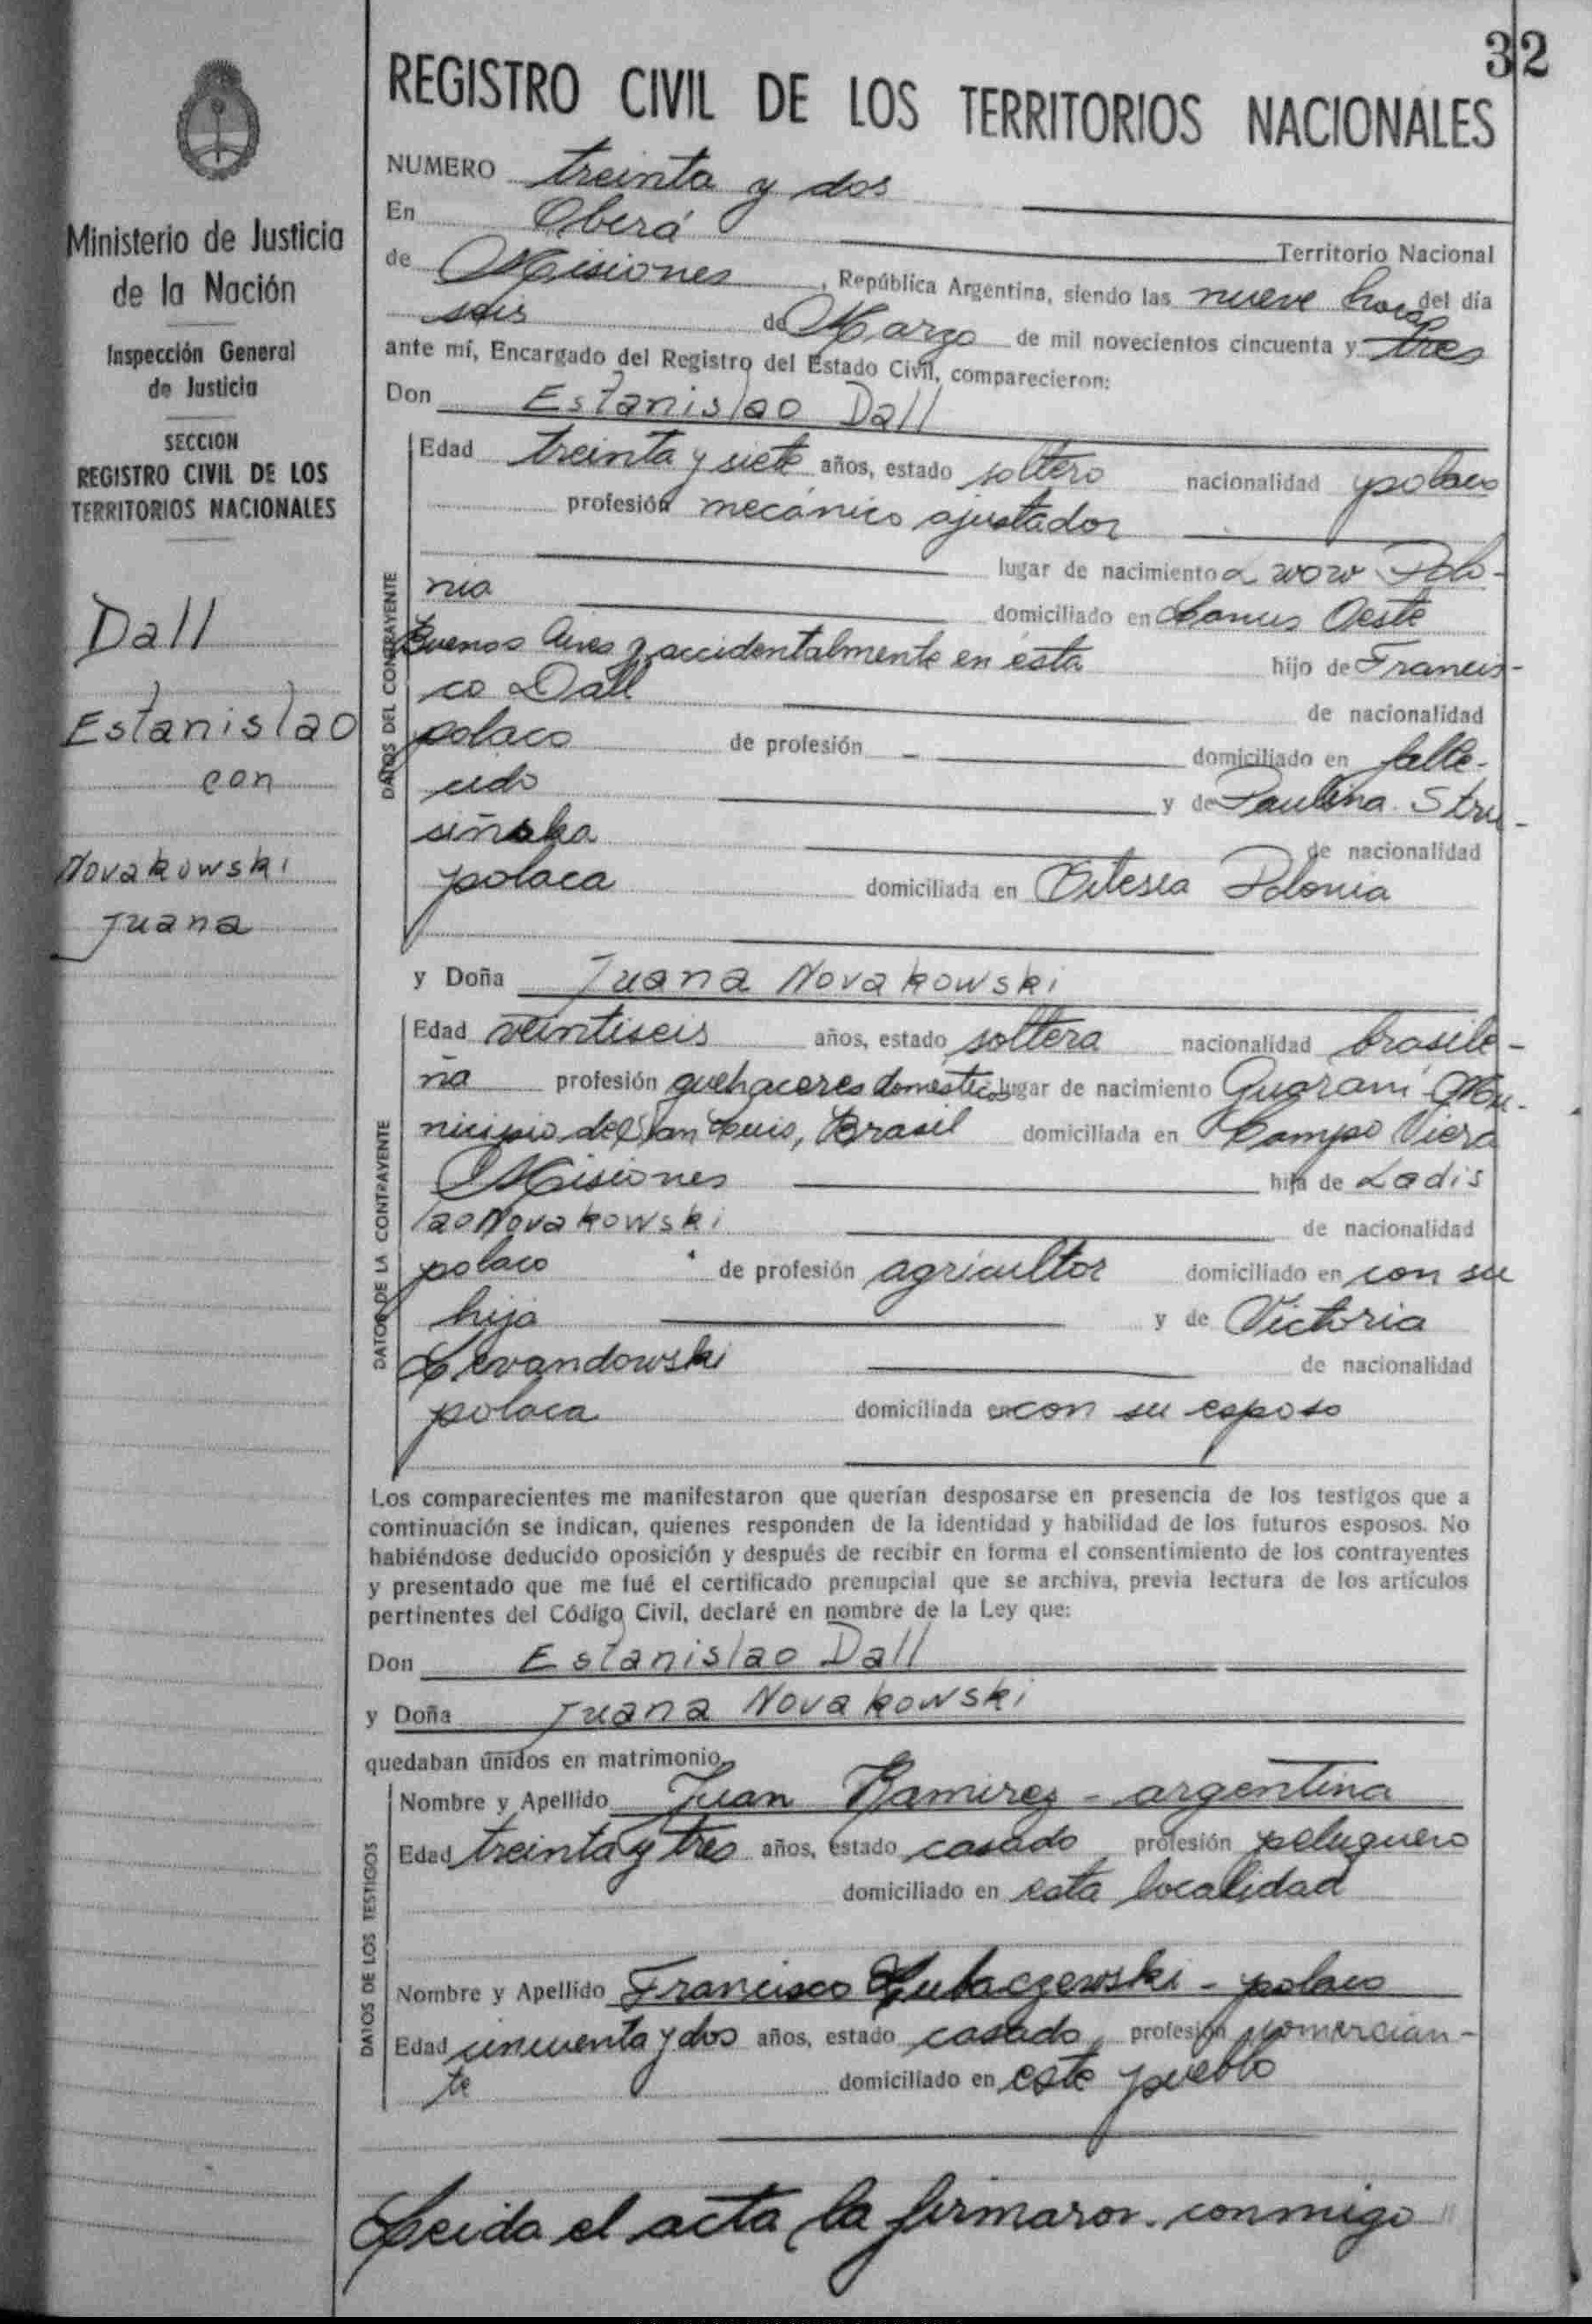 32
REGISTRO CIVIL DE LOS TERRITORIOS NACIONALES
Ministerio de Justicia
de la Nación
Inspección General
de Justicia
SECCION
REGISTRO CIVIL DE LOS
TERRITORIOS NACIONALES
Dall
Estanislao
con
Novakowski
Juana
NUMERO treinta y dos
En Oberá Territorio Nacional
de Misiones, República Argentina, siendo las nueve horas del día
seis de Marzo de mil novecientos cincuenta y tres
ante mí, Encargado del Registro del Estado Civil, comparecieron:
Don Estanislao Dall
DATOS DEL CONTRAYENTE
Edad treinta y siete años, estado soltero nacionalidad polaco
profesión mecánico ajustador
lugar de nacimiento Lwow Polo-
nia domiciliado en Lanus Oeste
Buenos Aires y accidentalmente en ésta hijo de Francis-
co Dall de nacionalidad
polaco de profesión - domiciliado en falle-
cido y de Paulina Stru-
siñska de nacionalidad
polaca domiciliada en Polonia
y Doña Juana Novakowski
DATOS DE LA CONTRAYENTE
Edad veintiseis años, estado soltera nacionalidad brasile-
ña profesión quehaceres domesticos lugar de nacimiento Guaraní Mu-
nicipio de San Luis, Brasil domiciliada en Campo Viera
Misiones hija de Ladis
lao Novakowski de nacionalidad
polaco de profesión agricultor domiciliado en con su
hija y de Victoria
Levandowski de nacionalidad
polaca domiciliada en con su esposo
Los comparecientes me manifestaron que querían desposarse en presencia de los testigos que a
continuación se indican, quienes responden de la identidad y habilidad de los futuros esposos. No
habiéndose deducido oposición y después de recibir en forma el consentimiento de los contrayentes
y presentado que me fué el certificado prenupcial que se archiva, previa lectura de los artículos
pertinentes del Código Civil, declaré en nombre de la Ley que:
Don Estanislao Dall
y Doña Juana Novakowski
quedaban unidos en matrimonio
DATOS DE LOS TESTIGOS
Nombre y Apellido Juan Ramirez - argentina
Edad treinta y tres años, estado casado profesión peluquero
domiciliado en esta localidad
Nombre y Apellido Francisco Lubaczewski - polaco
Edad cincuenta y dos años, estado casado, profesión comercian-
te domiciliado en este pueblo
Leida el acta la firmaron conmigo